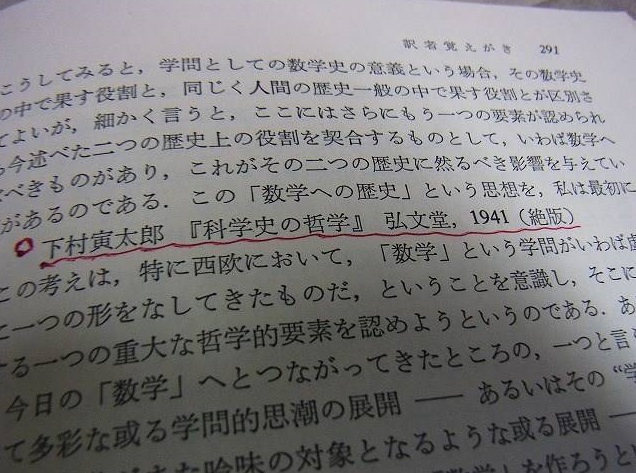 訳者覚えがき 291
こうしてみると，学問としての数学史の意義という場合，その数学史
の中で果す役割と，同じく人間の歴史一般の中で果す役割とが区別さ
てよいが，細かく言うと，ここにはさらにもう一つの要素が認められ
今述べた二つの歴史上の役割を契合するものとして，いわば数学へ
べきものがあり，これがその二つの歴史に然るべき影響を与えてい
があるのである．この「数学への歴史」という思想を，私は最初に
下村寅太郎 『科学史の哲学』 弘文堂，1941（絶版）
この考えは，特に西欧において，「数学」という学問がいわば虚
に一つの形をなしてきたものだ，ということを意識し，そこに
する一つの重大な哲学的要素を認めようというのである．あ
今日の「数学」へとつながってきたところの，一つと言う
て多彩な或る学問的思潮の展開 ―― あるいはその “学
吟味の対象となるような或る展開 ――
を作ろうと